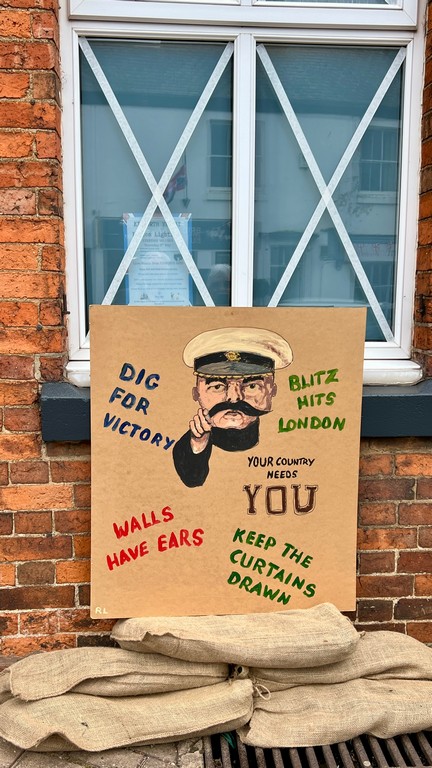 DIG
FOR
VICTORY
BLITZ
HITS
LONDON
YOUR COUNTRY
NEEDS
YOU
WALLS
HAVE EARS
KEEP THE
CURTAINS
DRAWN
R.L